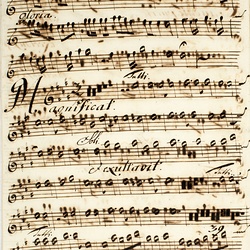 Gloria.
Tutti.
Magnificat.
Soli
Et exultavit.
Tutti
Tutti